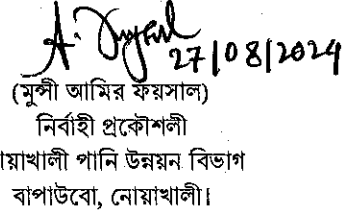 27/08/2024
(মুন্সী আমির ফয়সাল)
নির্বাহী প্রকৌশলী
য়াখালী পানি উন্নয়ন বিভাগ
বাপাউবো, নোয়াখালী।